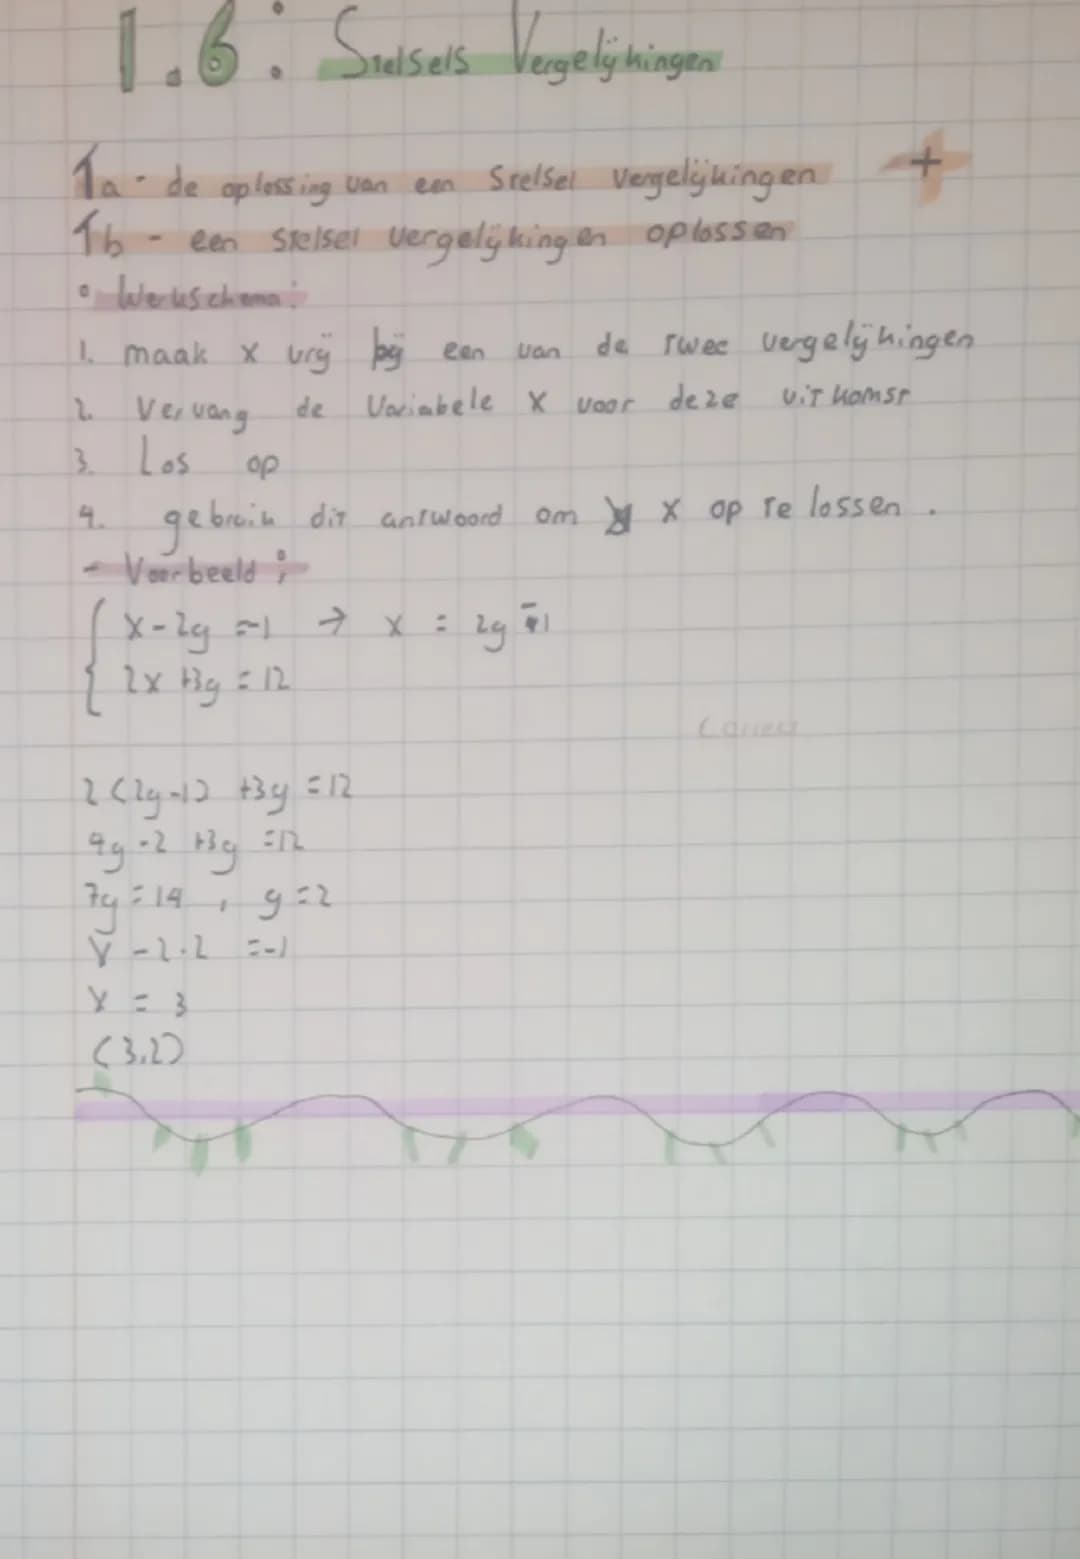 1.6: Stelsels Vergelijkingen
1a - de oplossing van een Stelsel vergelijkingen +
1b - een stelsel vergelijkingen oplossen
Werkschema:
1. maak x vrij bij een van de twee vergelijkingen
2. Vervang de Variabele x voor deze uitkomst
3. Los op
4. gebruik dit antwoord om x op te lossen.
- Voorbeeld;
x-2y =-1 → x = 2y -1
2x +3y = 12
2(2y-1) +3y =12
4y -2 +3y =12
7y = 14, y=2
x -2·2 =-1
x = 3
(3,2)